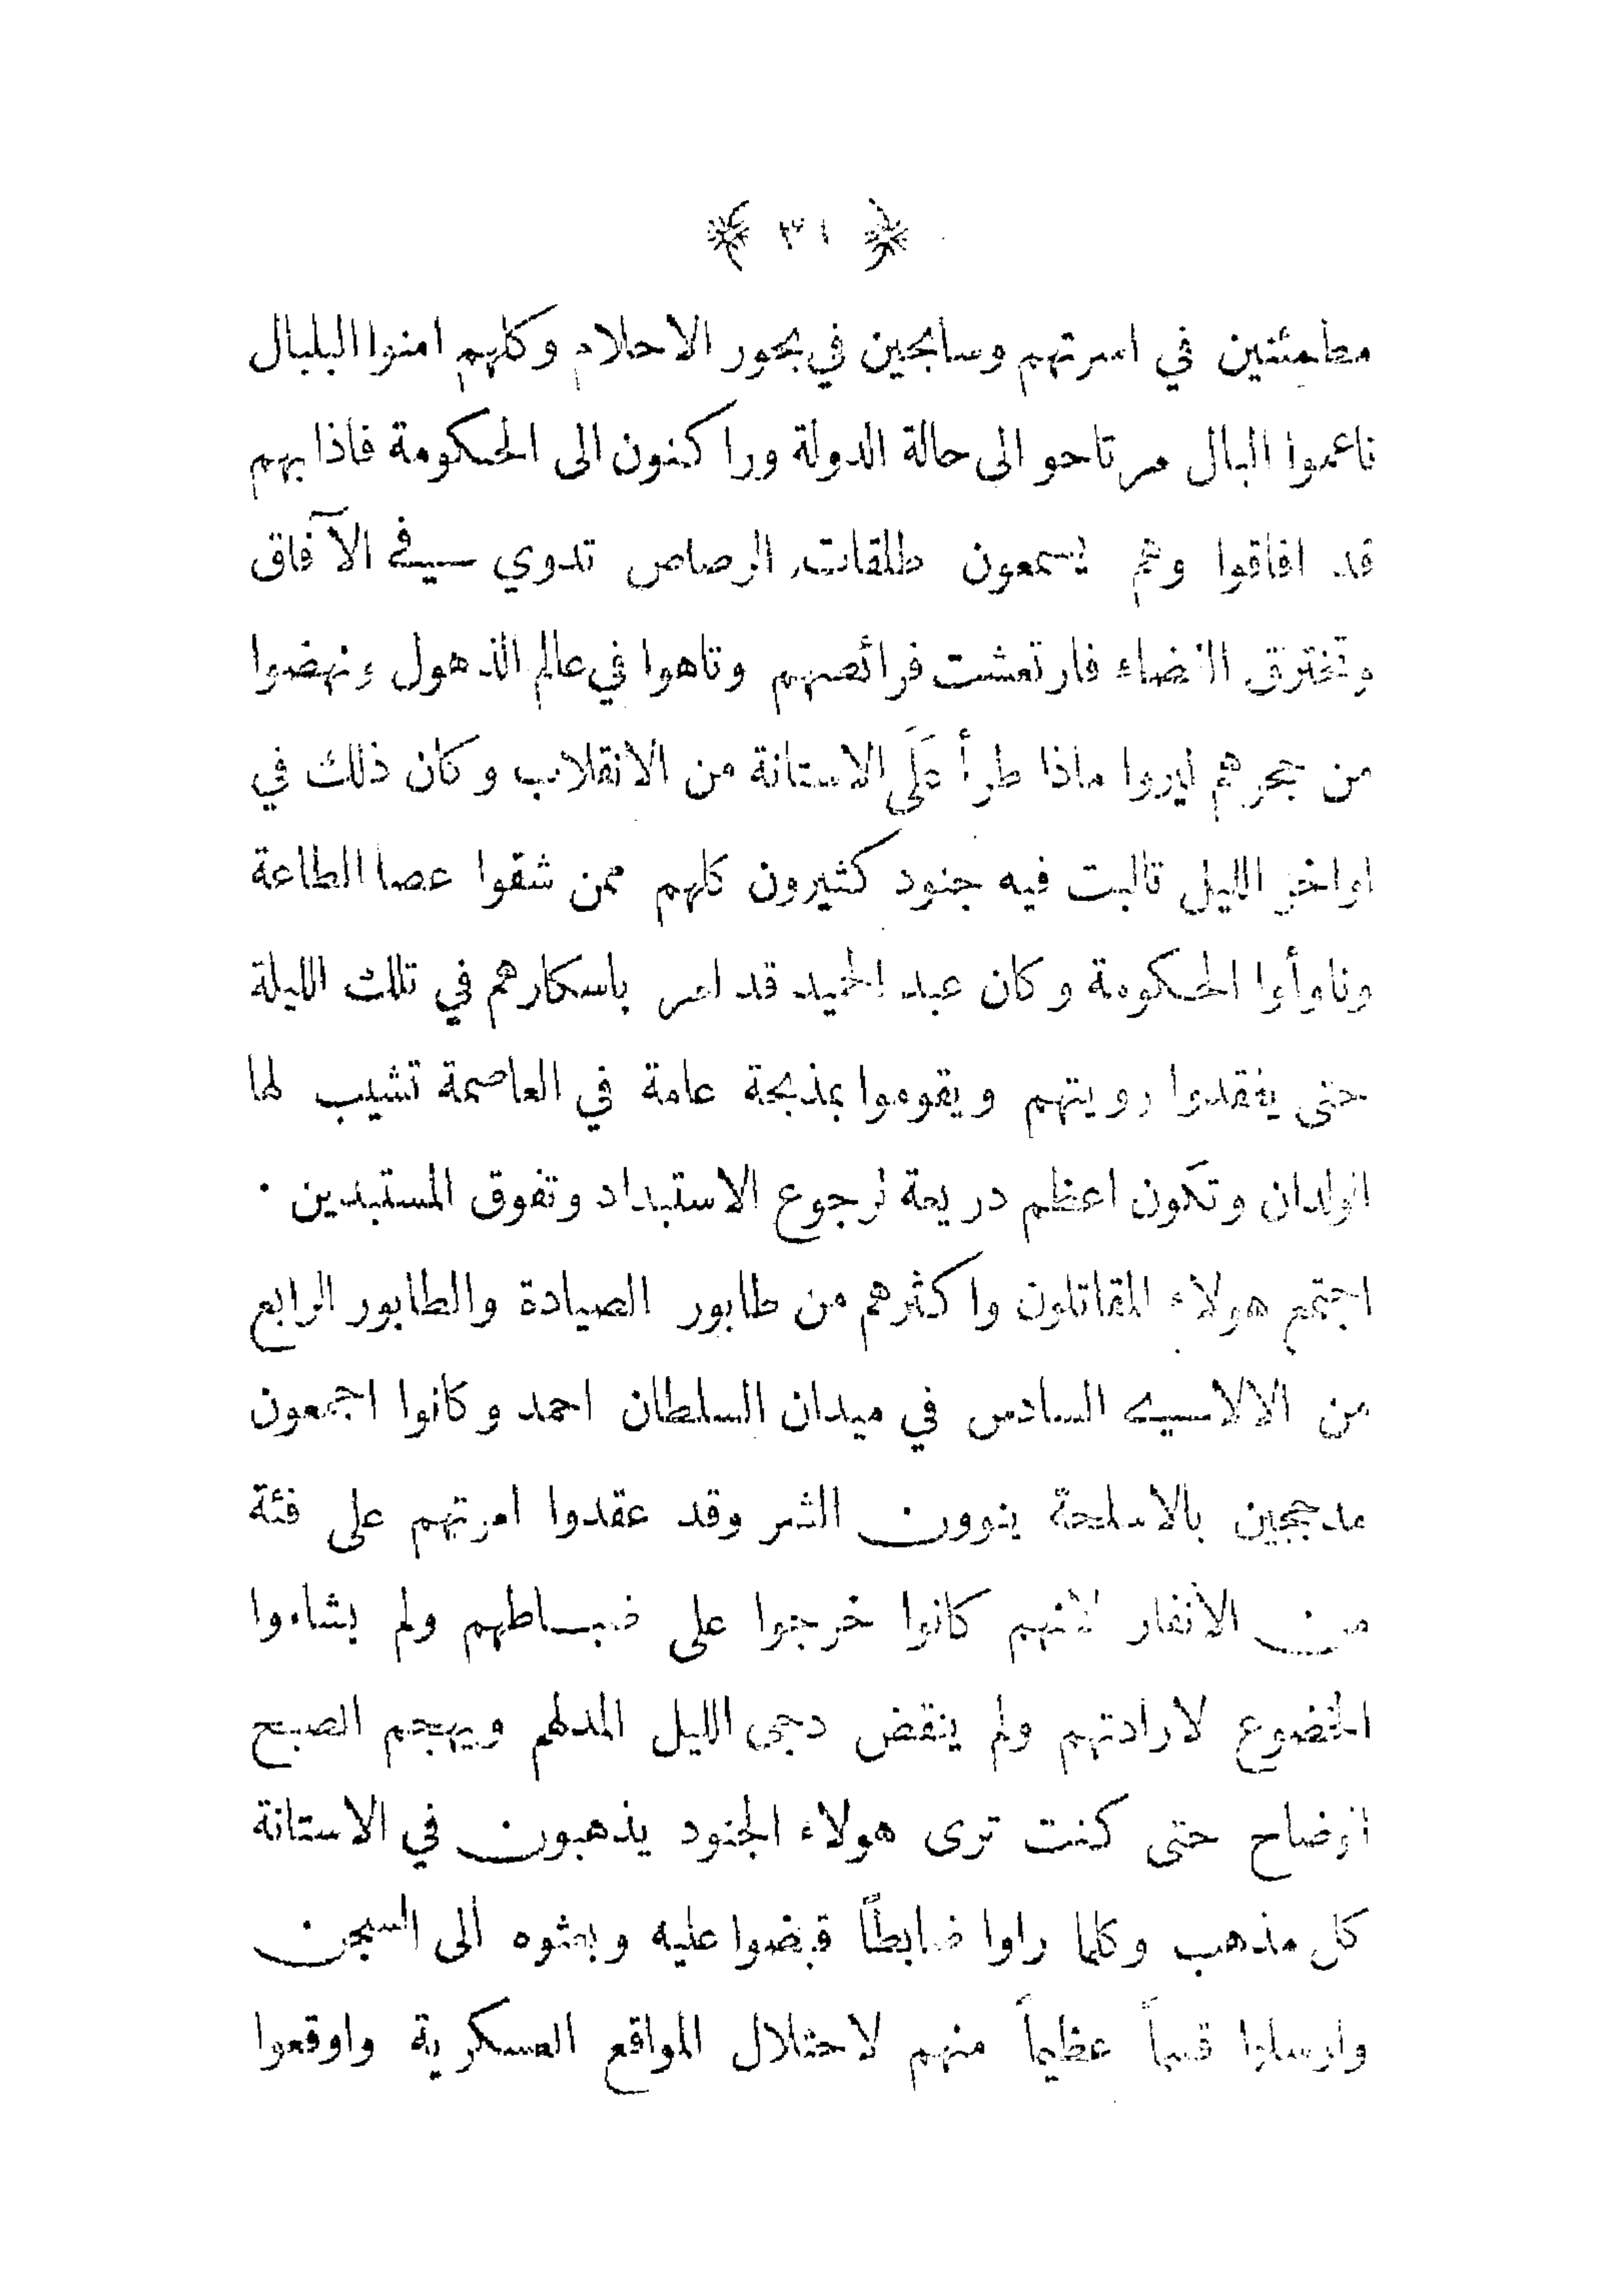 ﴿ ٣١ ﴾
مطمئنين في اسرتهم وسابحين في بحور الاحلام وكلهم امنوا البلبال
ناعموا البال مرتاحو الى حالة الدولة وراكنون الى الحكومة فاذا بهم
قد افاقوا وهم يسمعون طلقات الرصاص تدوي في الآفاق
وتخترق الفضاء فارتعشت فرائصهم وتاهوا في عالم الذهول ونهضوا
من حجرهم ليروا ماذا طرأ عَلَى الاستانة من الانقلاب وكان ذلك في
اواخر الليل تالبت فيه جنود كثيرون كلهم ممن شقوا عصا الطاعة
وناوأوا الحكومة وكان عبد الحميد قد امر باسكارهم في تلك الليلة
حتى يفقدوا رويتهم ويقوموا بمذبحة عامة في العاصمة تشيب لها
الولدان وتكون اعظم دريعة لرجوع الاستبداد وتفوق المستبدين ٠
اجتمع هولاء المقاتلون واكثرهم من طابور الصيادة والطابور الرابع
من الالاي السادس في ميدان السلطان احمد وكانوا اجمعون
مدججين بالاسلحة ينوون الشر وقد عقدوا امرتهم على فئة
من الانفار لانهم كانوا خرجوا على ضباطهم ولم يشاءوا
الخضوع لارادتهم ولم ينقض دجى الليل المدلهم ويهجم الصبح
الوضاح حتى كنت ترى هولاء الجنود يذهبون في الاستانة
كل مذهب وكلما راوا ضابطاً قبضوا عليه وبعثوه الى السجن
وارسلوا قسماً عظيماً منهم لاحتلال المواقع العسكرية واوقعوا